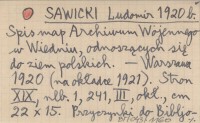 SAWICKI Ludomir 1920 b.
Spis map Archiwum Wojennego
w Wiedniu, odnoszących się
do ziem polskich. — Warszawa
1920 (na okładce 1921). Stron
XIX, nlb. 1, 241, III, okl., cm
22 x 15. Przyczynki do Bibljo-